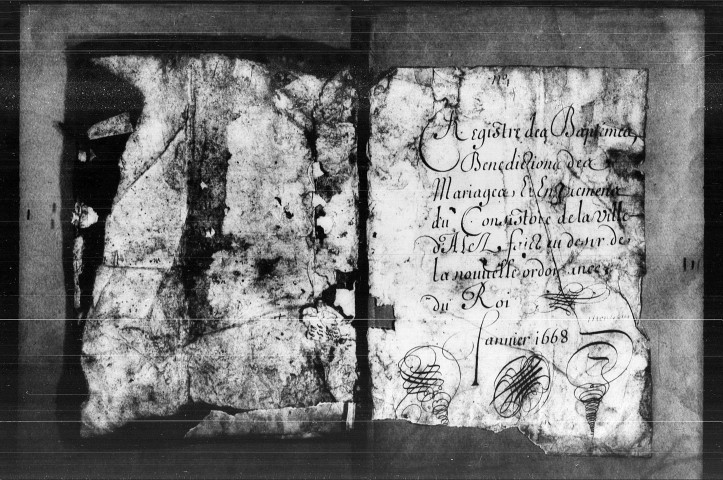 Registre des Baptemes,
Benedictions des
Mariages, & Enterremens
du Consistoire de la Ville
d'Alez, faict en desir de
la nouvelle ordonnance
du Roi
Janvier 1668